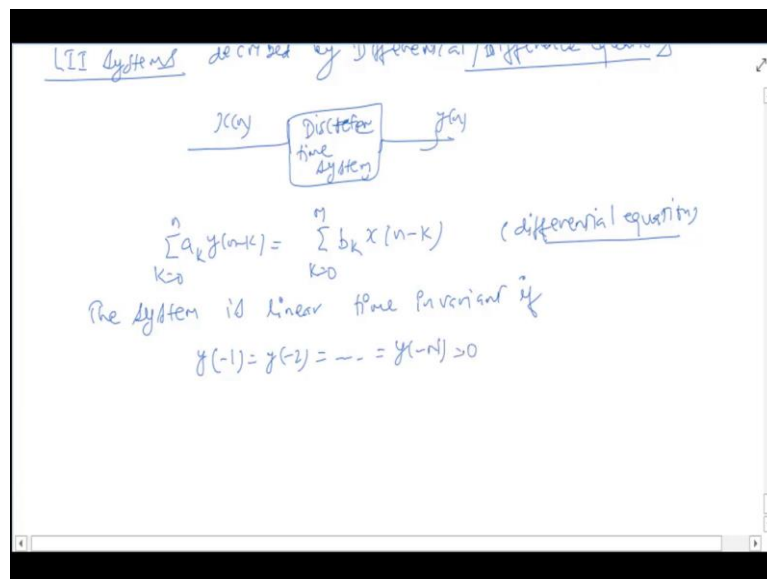 LTI Systems decribed by Differential / Difference equations
x(n) Discrete time system y(n)
n M
∑ a_k y(n-k) = ∑ b_k x(n-k) (differential equation)
k=0 k=0
The system is linear time invariant if
y(-1) = y(-2) = ---- = y(-N) = 0